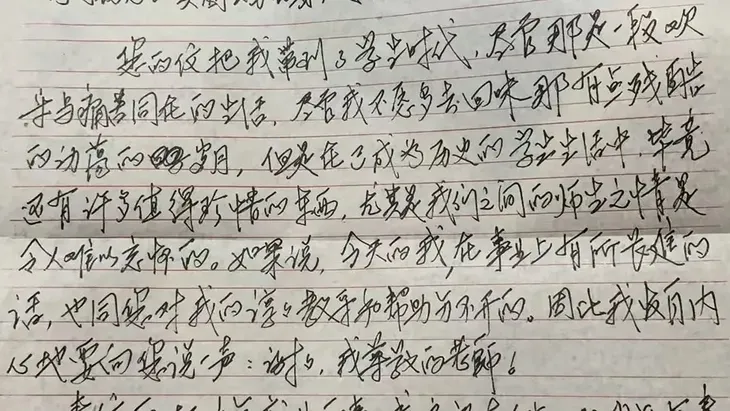 您的信把我带到了学生时代，尽管那是一段欢
乐与痛苦同在的生活，尽管我不愿多去回味那有点残酷
的动荡的岁月，但是在已成为历史的学生生活中，毕竟
还有许多值得珍惜的东西，尤其是我们之间的师生之情是
令人难以忘怀的。如果说，今天的我，在事业上有所长进的
话，也同您对我的谆谆教导和帮助分不开的。因此我发自内
心地要向您说一声：谢谢，我尊敬的老师！